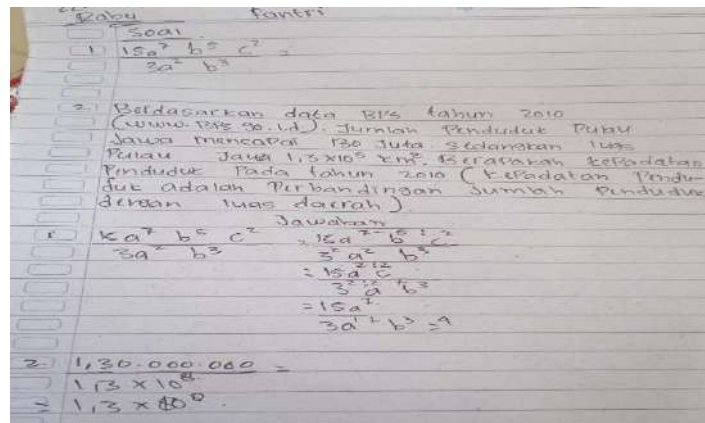 Rabu fantri
Soal
1 15a⁷ b⁵ c² =
3a² b³
2. Berdasarkan data BPS tahun 2010
(www.BPS.go.id). Jumlah Penduduk Pulau
Jawa mencapai 130 Juta. Sedangkan luas
Pulau Jawa 1,3x10⁵ km². Berapakah kepadatan
Penduduk Pada tahun 2010 (kepadatan Pendu-
duk adalah Perbandingan Jumlah Penduduk
dengan luas daerah)
Jawaban
a⁷ b⁵ c²
3a² b³
= 15a
3 a² b³
= 15a c
3 a b³
= 15a
3a b³ =
2. 1,30.000.000 =
1,3 x 10
= 1,3 x